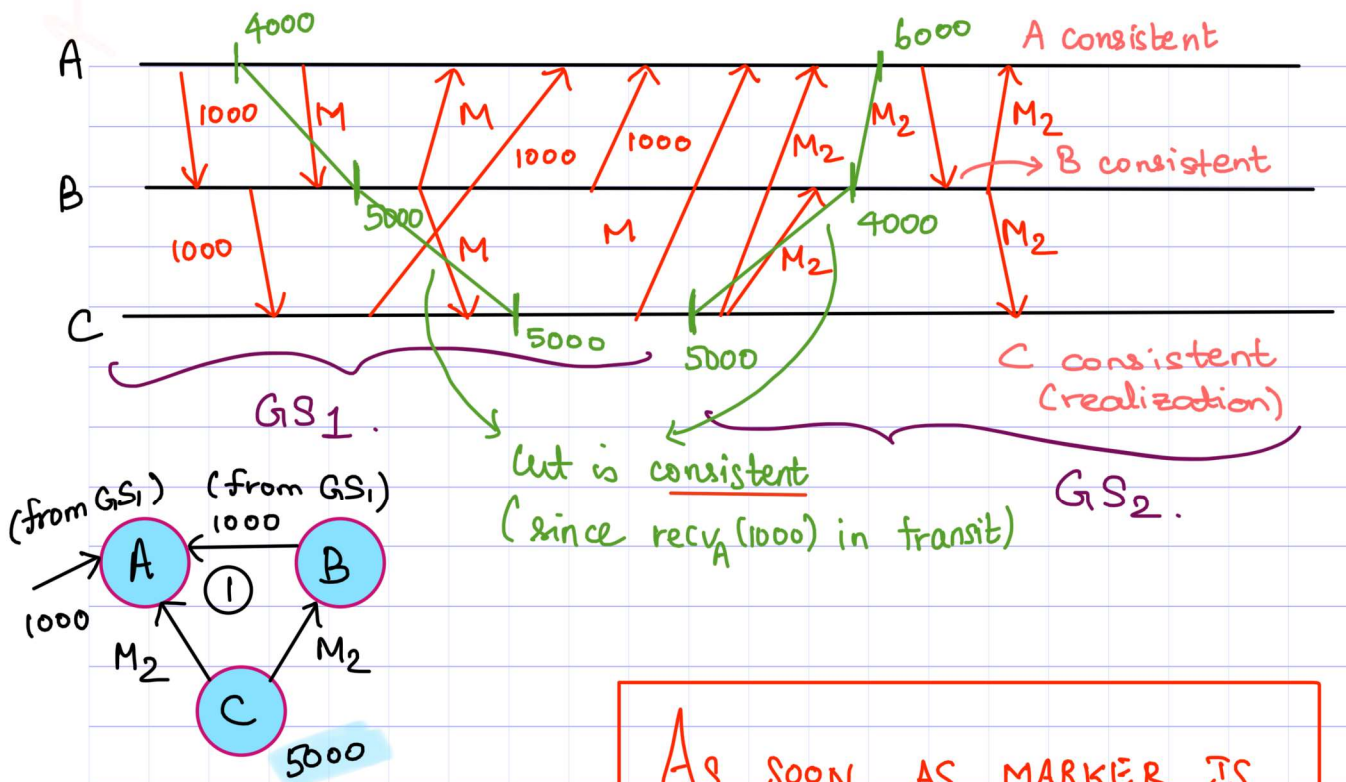 4000
6000
A consistent
A
1000
M
M
1000
1000
M2
M2
M2
B consistent
B
5000
4000
1000
M
M
M2
M2
C
5000
5000
C consistent
(realization)
GS1.
GS2.
Cut is consistent
(since recvA(1000) in transit)
(from GS1)
(from GS1)
1000
A
B
1
1000
M2
M2
C
5000
AS SOON AS MARKER IS